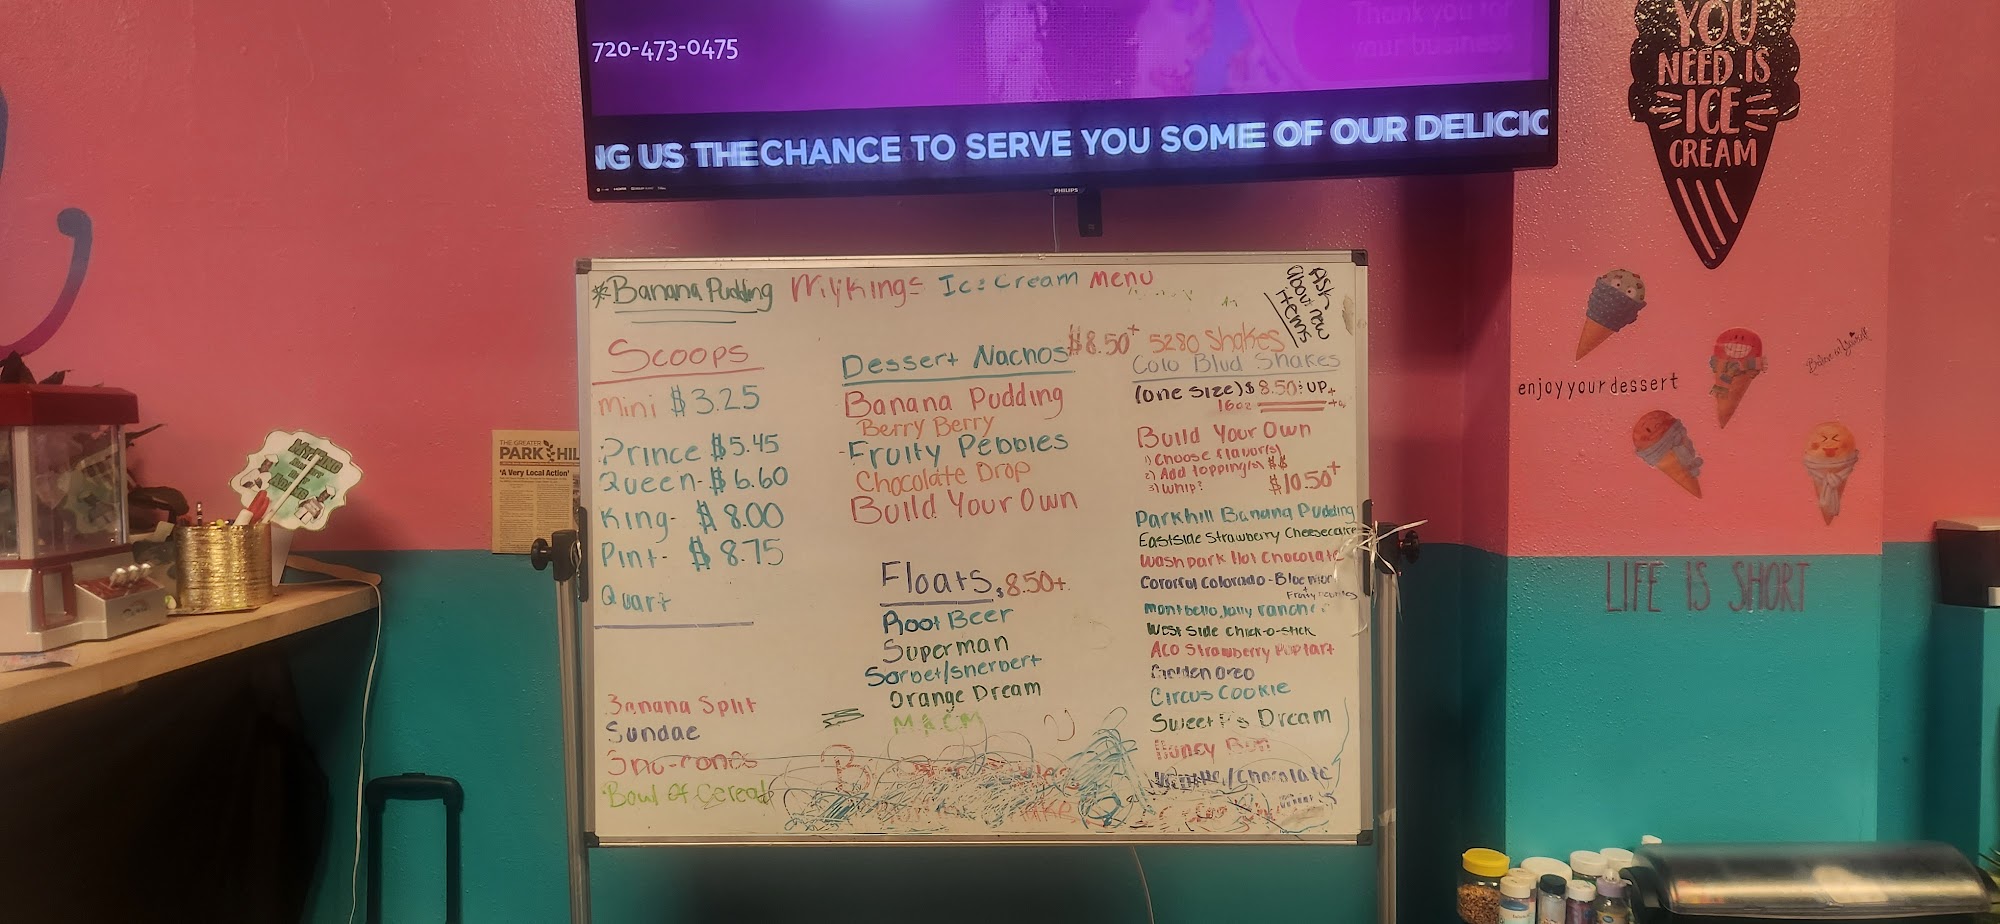 720-473-0475
Thank you for
your business
NG US THE CHANCE TO SERVE YOU SOME OF OUR DELICIO
PHILIPS
YOU
NEED IS
ICE
CREAM
enjoy your dessert
LIFE IS SHORT
THE GREATER
PARK HIL
'A Very Local Action'
*Banana Pudding Mykings Ice Cream Menu
Ask
about new
items
Scoops
Mini $3.25
Prince $5.45
Queen- $6.60
King- $8.00
Pint- $8.75
Quart
Banana Split
Sundae
Sno-cones
Bowl of Cereal
Dessert Nachos $8.50+
Banana Pudding
Berry Berry
-Fruity Pebbles
Chocolate Drop
Build Your Own
Floats $8.50+
Root Beer
Superman
Sorbet/Sherbert
Orange Dream
M.A.C.M
5280 Shakes
Colo Blvd Shakes
(one size) $8.50 UP+
16oz
Build Your Own
1) Choose flavor(s)
2) Add topping(s) $$
3) Whip?
$10.50+
Parkhill Banana Pudding
Eastside Strawberry Cheesecake
Washpark Hot Chocolate
Colorful Colorado-
Montbello Jolly Rancher
West Side Chick-o-stick
ACO Strawberry Poptart
Golden Oreo
Circus Cookie
Sweet P's Dream
Honey Bun
/Chocolate